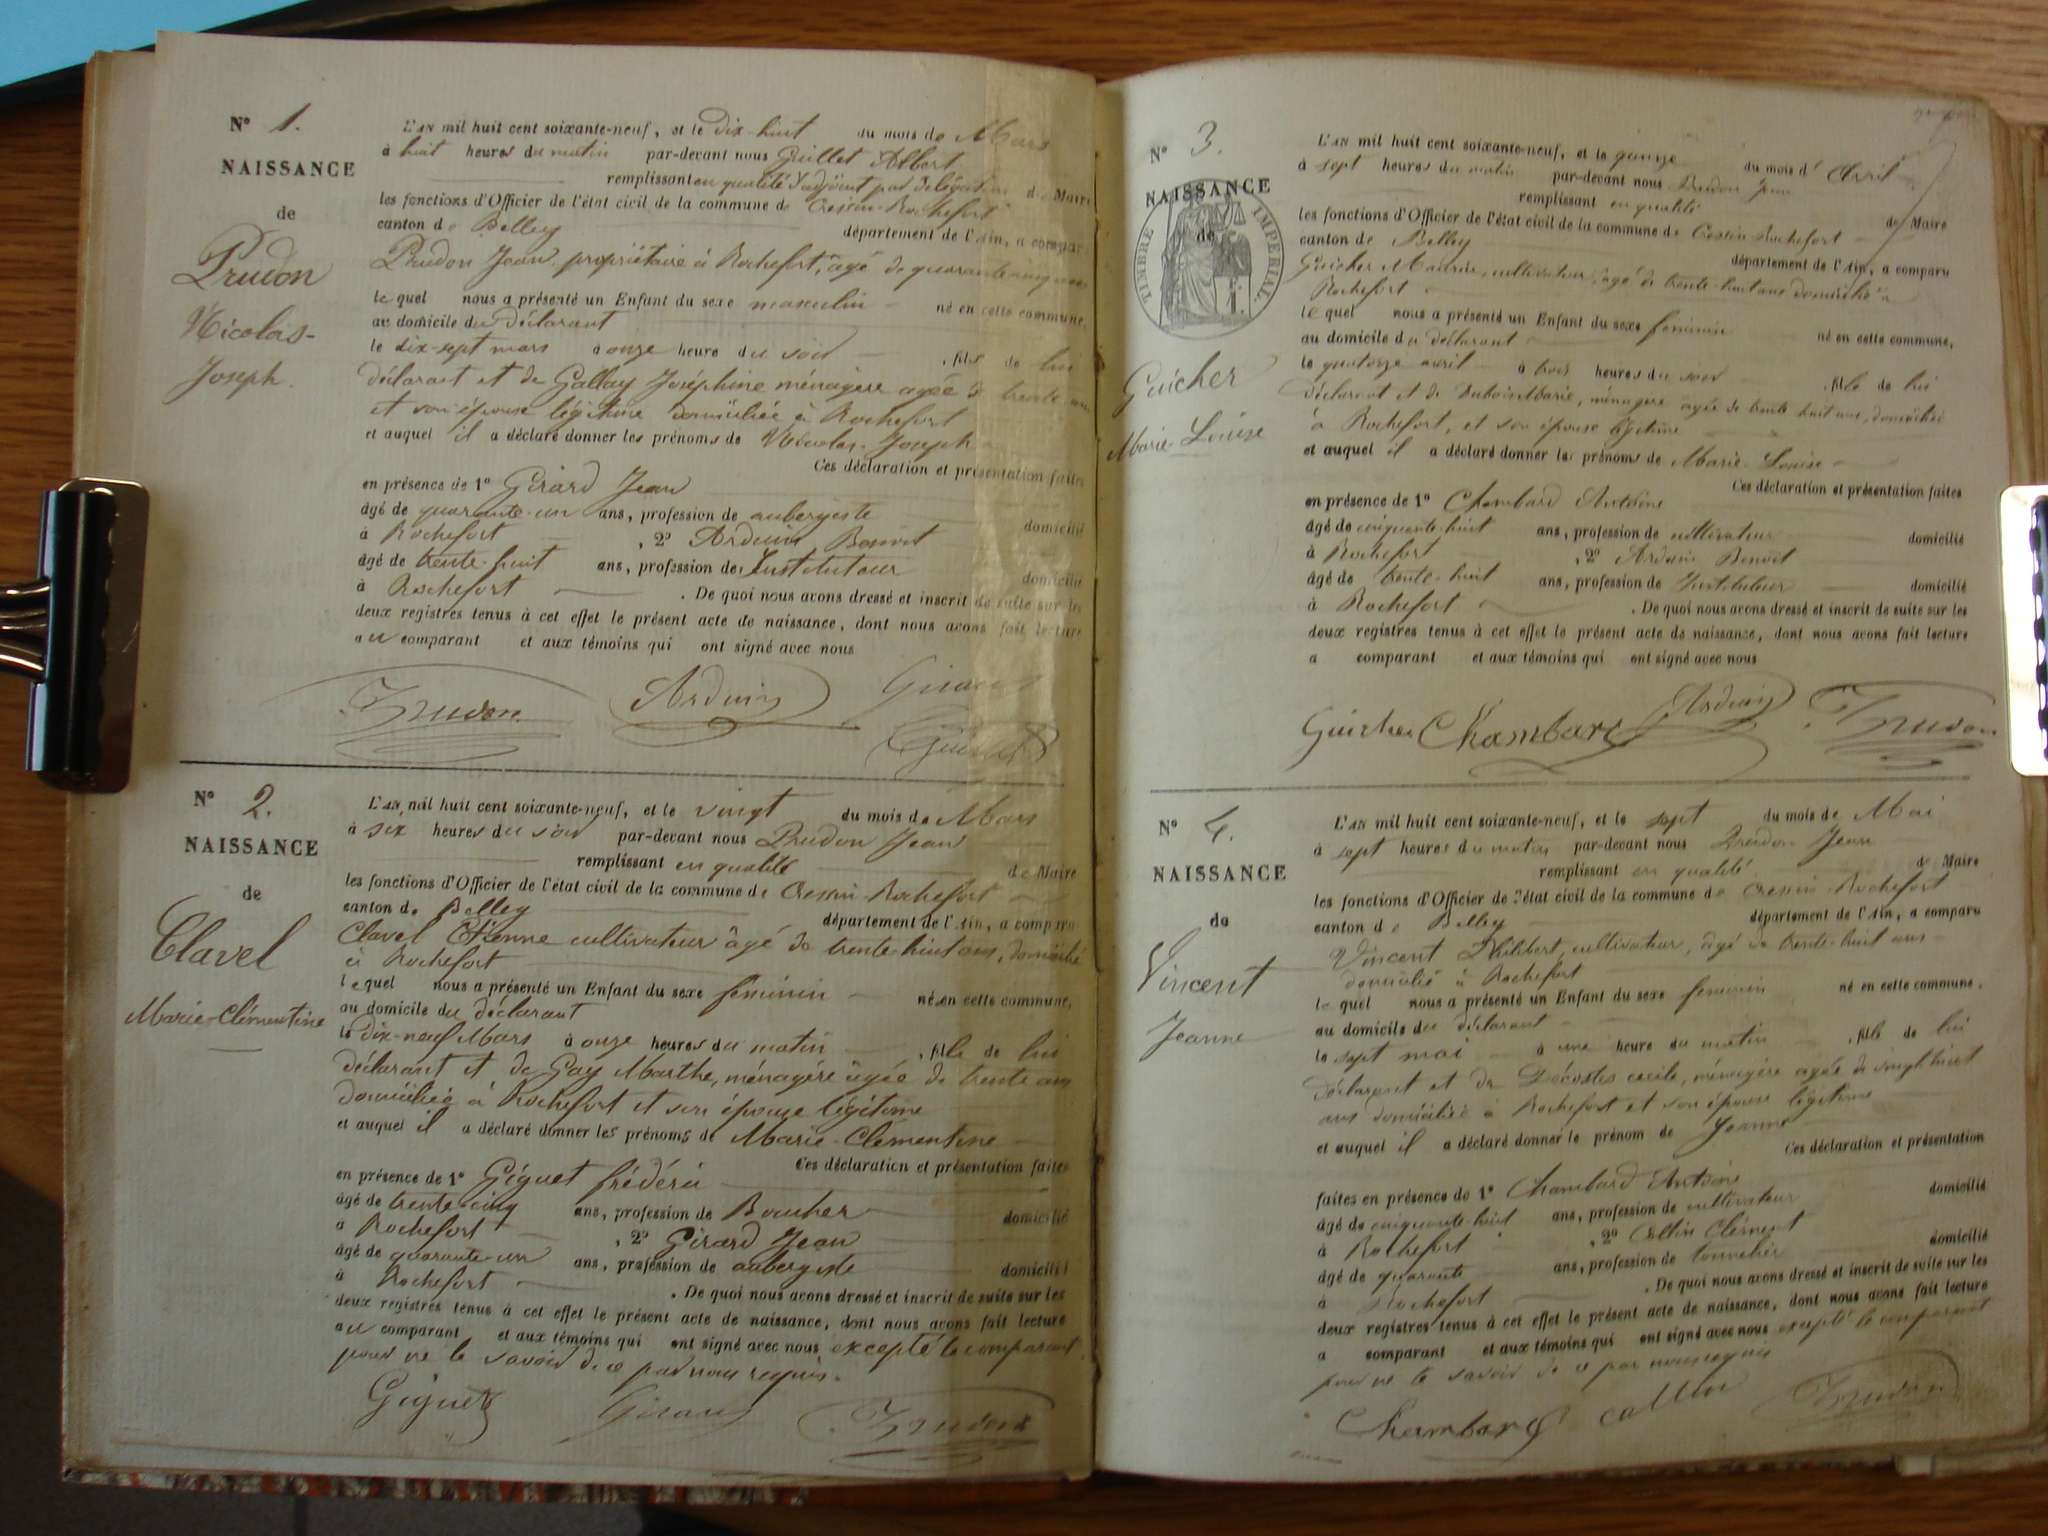 N° 1.
NAISSANCE
de
Prudon
Nicolas-
Joseph.
L'AN mil huit cent soixante-neuf, et le dix-huit du mois de Mars
à huit heures du matin par-devant nous Guillet Albert
remplissant en qualité d'adjoint par délégation de Maire
les fonctions d'Officier de l'état civil de la commune de Cressin-Rochefort
canton de Belley département de l'Ain, a compar
Prudon Jean, propriétaire à Rochefort, âgé de quarante cinq
lequel nous a présenté un Enfant du sexe masculin né en cette commune,
au domicile du déclarant
le dix-sept mars à onze heure du soir, fils de lui
déclarant et de Gallay Joséphine ménagère agée de trente ans
et son épouse légitime domiciliée à Rochefort
et auquel il a déclaré donner les prénoms de Nicolas-Joseph
Ces déclaration et présentation faites
en présence de 1° Girard Jean
âgé de quarante-un ans, profession de aubergiste domicilié
à Rochefort, 2° Arduin Benoit
âgé de trente-huit ans, profession de Instituteur domicilié
à Rochefort. De quoi nous avons dressé et inscrit de suite sur les
deux registres tenus à cet effet le présent acte de naissance, dont nous avons fait lecture
au comparant et aux témoins qui ont signé avec nous
Prudon Arduin Girard
Guillet
N° 2.
NAISSANCE
de
Clavel
Marie-Clémentine
L'AN mil huit cent soixante-neuf, et le vingt du mois de Mars
à six heures du soir par-devant nous Prudon Jean
remplissant en qualité de Maire
les fonctions d'Officier de l'état civil de la commune de Cressin-Rochefort
canton de Belley département de l'Ain, a comparu
Clavel Etienne cultivateur âgé de trente-huit ans, domicilié
à Rochefort
lequel nous a présenté un Enfant du sexe féminin née en cette commune,
au domicile du déclarant
le dix-neuf Mars à onze heures du matin, fille de lui
déclarant et de Gay Marthe, ménagère âgée de trente ans
domiciliée à Rochefort et son épouse légitime
et auquel il a déclaré donner les prénoms de Marie-Clémentine
Ces déclaration et présentation faites
en présence de 1° Giguet frédéric
âgé de trente-cinq ans, profession de Boucher domicilié
à Rochefort, 2° Girard Jean
âgé de quarante-un ans, profession de aubergiste domicilié
à Rochefort. De quoi nous avons dressé et inscrit de suite sur les
deux registres tenus à cet effet le présent acte de naissance, dont nous avons fait lecture
au comparant et aux témoins qui ont signé avec nous excepté le comparant
pour ne le savoir de ce par nous requis.
Giguet Girard Prudon
N° 3.
NAISSANCE
de
TIMBRE IMPERIAL.
Guicher
Marie-Louise
L'AN mil huit cent soixante-neuf, et le quinze du mois d'Avril
à sept heures du matin par-devant nous Prudon Jean
remplissant en qualité de Maire
les fonctions d'Officier de l'état civil de la commune de Cressin-Rochefort
canton de Belley département de l'Ain, a comparu
Guicher Maurice, cultivateur, âgé de trente-huit ans domicilié à
Rochefort
lequel nous a présenté un Enfant du sexe féminin né en cette commune,
au domicile du déclarant
le quatorze avril à trois heures du soir, fille de lui
déclarant et de Dubois Marie, ménagère agée de trente huit ans, domiciliée
à Rochefort, et son épouse légitime
et auquel il a déclaré donner les prénoms de Marie-Louise
Ces déclaration et présentation faites
en présence de 1° Chambard Antoine
âgé de cinquante-huit ans, profession de cultivateur domicilié
à Rochefort, 2° Arduin Benoit
âgé de trente-huit ans, profession de Instituteur domicilié
à Rochefort. De quoi nous avons dressé et inscrit de suite sur les
deux registres tenus à cet effet le présent acte de naissance, dont nous avons fait lecture
a comparant et aux témoins qui ont signé avec nous
Guicher Chambard Arduin Prudon
N° 4.
NAISSANCE
de
Vincent
Jeanne
L'AN mil huit cent soixante-neuf, et le sept du mois de Mai
à sept heures du matin par-devant nous Prudon Jean
remplissant en qualité de Maire
les fonctions d'Officier de l'état civil de la commune de Cressin-Rochefort
canton de Belley département de l'Ain, a comparu
Vincent Philibert, cultivateur, âgé de trente-huit ans
domicilié à Rochefort
lequel nous a présenté un Enfant du sexe féminin né en cette commune,
au domicile du déclarant
le sept mai à une heure du matin, fille de lui
déclarant et de Décostes cecile, ménagère agée de vingt huit
ans domiciliée à Rochefort et son épouse légitime
et auquel il a déclaré donner le prénom de Jeanne
Ces déclaration et présentation
faites en présence de 1° Chambard Antoine
âgé de cinquante-huit ans, profession de cultivateur domicilié
à Rochefort, 2° Collin Clément
âgé de quarante ans, profession de tonnelier domicilié
à Rochefort. De quoi nous avons dressé et inscrit de suite sur les
deux registres tenus à cet effet le présent acte de naissance, dont nous avons fait lecture
a comparant et aux témoins qui ont signé avec nous excepté le comparant
pour ne le savoir de ce par nous requis
Chambard collin Prudon